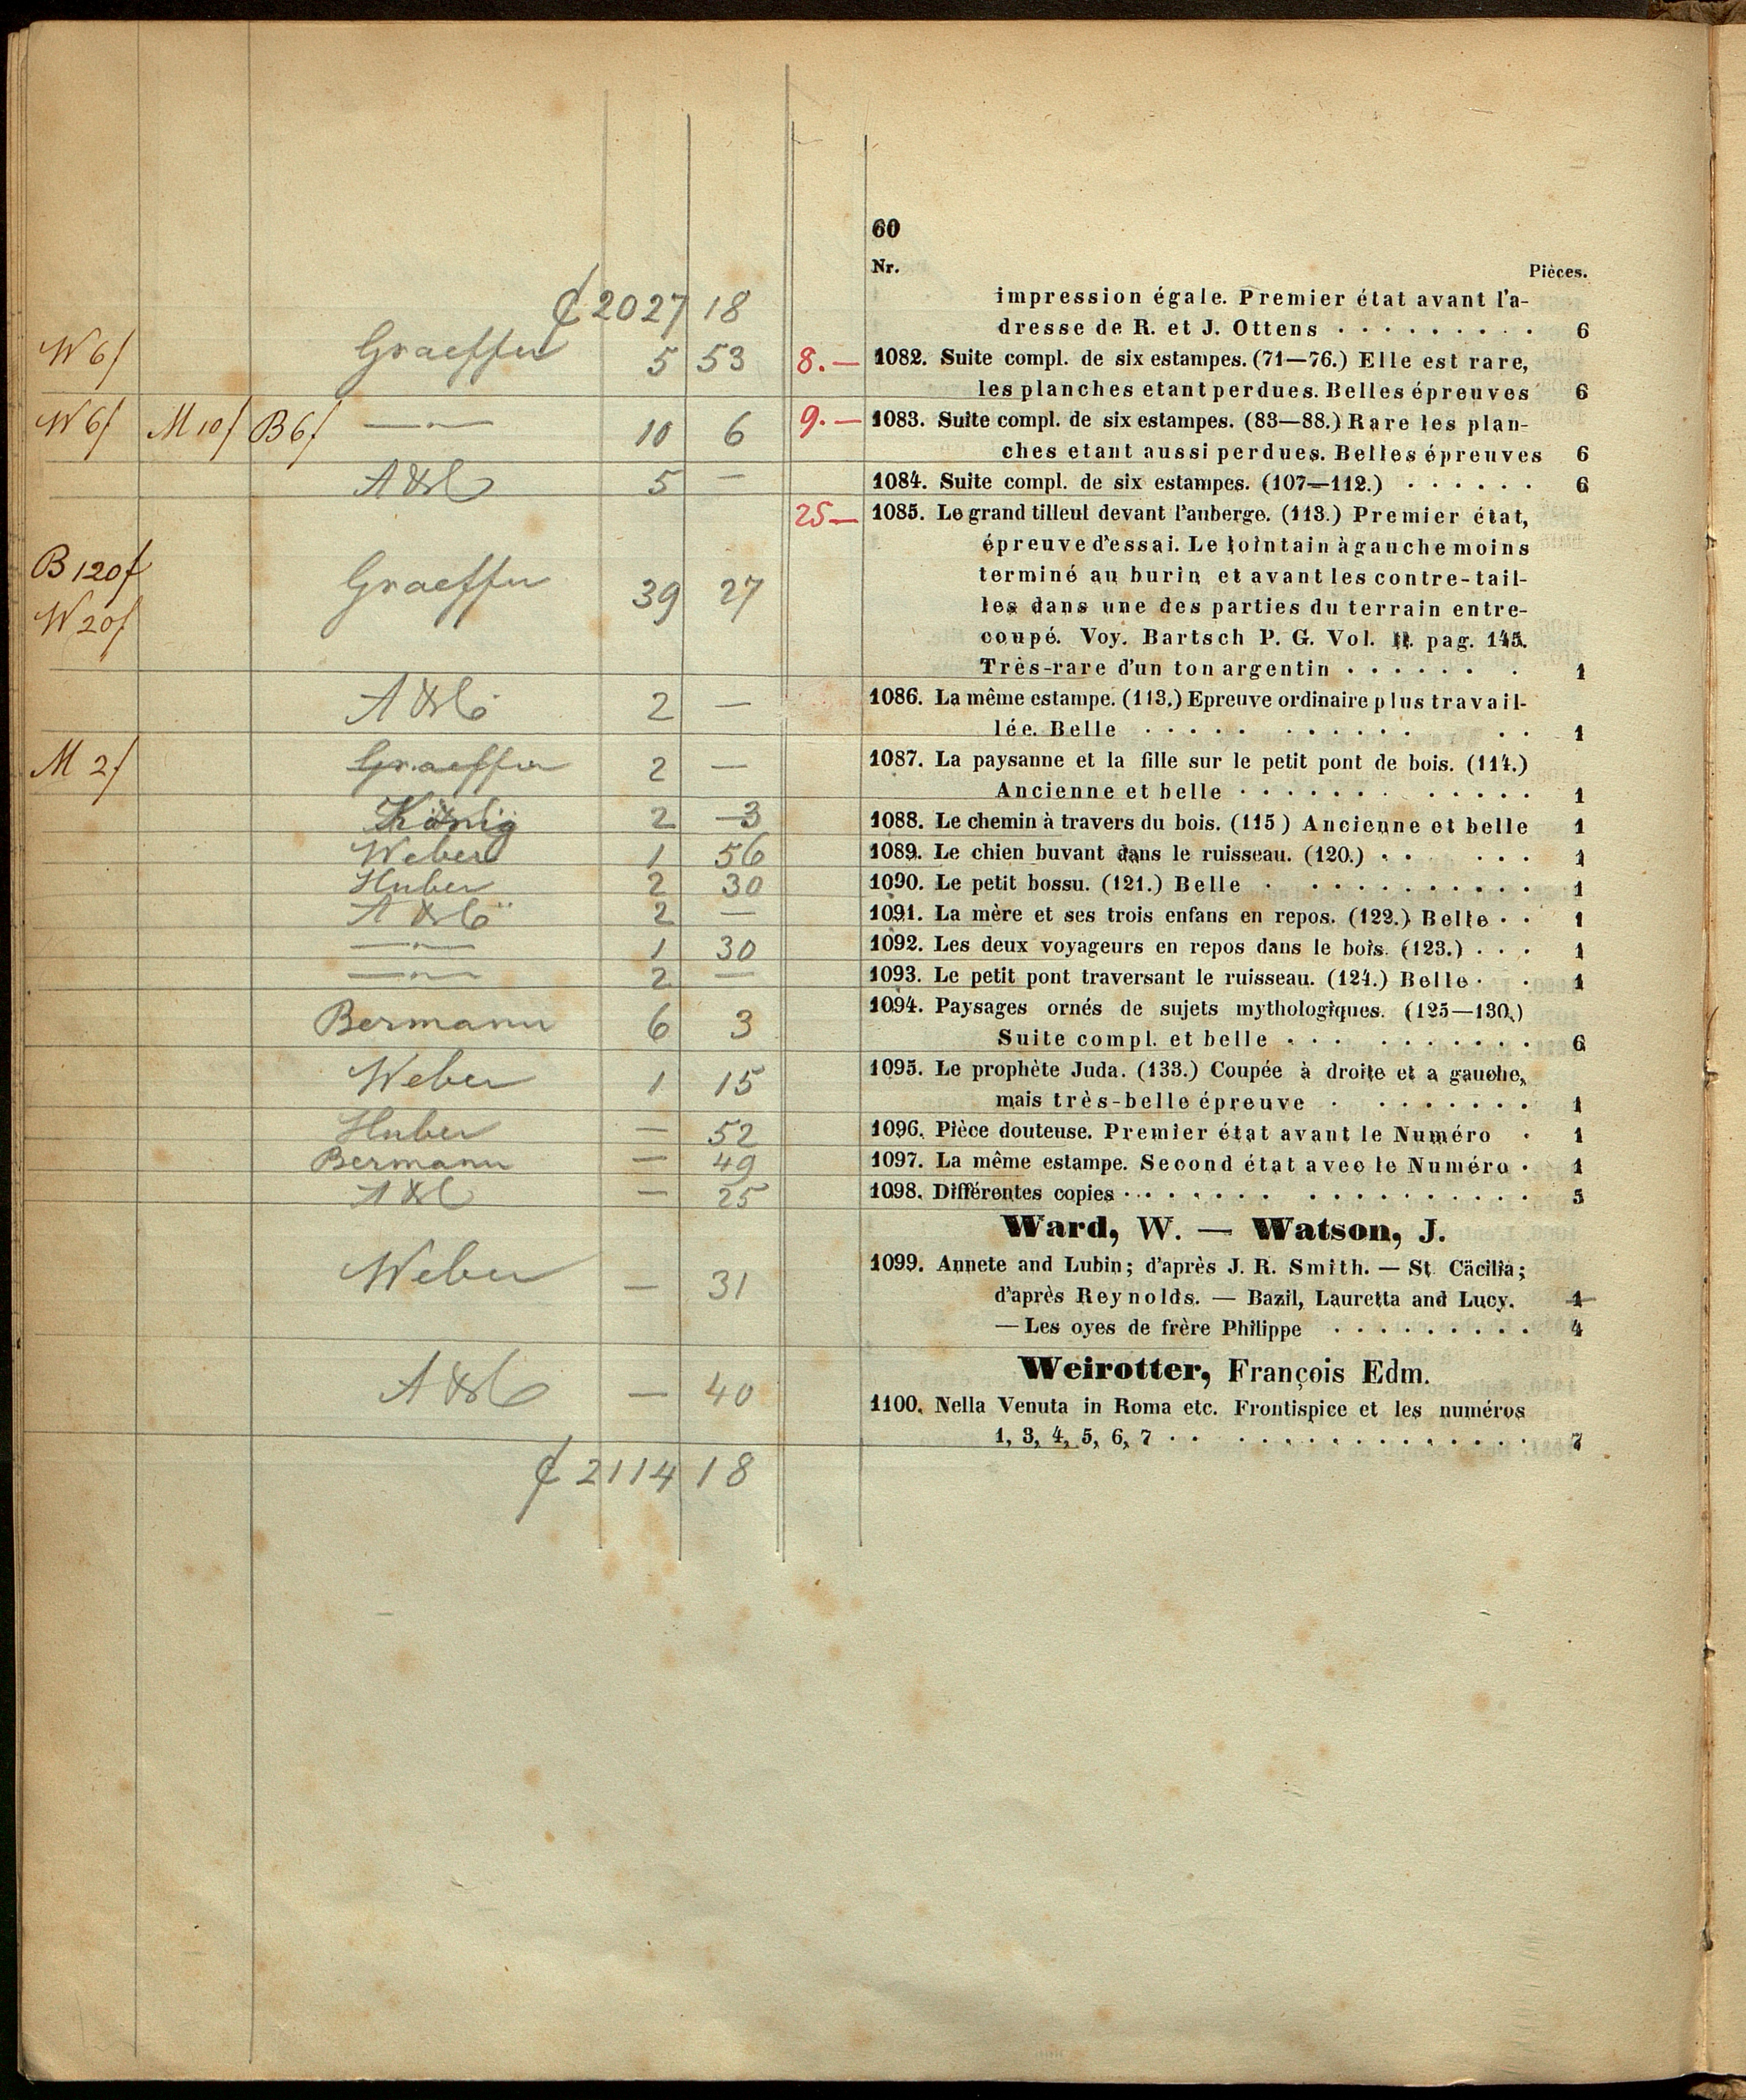 60
Nr. Pièces.
2027 18
impression égale. Premier état avant l'a-
dresse de R. et J. Ottens . . . . . . . . . 6
W 6f Graeffer 5 53 8.— 1082. Suite compl. de six estampes. (71—76.) Elle est rare,
les planches etant perdues. Belles épreuves 6
W 6f M 10f B 6f —"— 10 6 9.— 1083. Suite compl. de six estampes. (83—88.) Rare les plan-
ches etant aussi perdues. Belles épreuves 6
5 — 1084. Suite compl. de six estampes. (107—112.) . . . . . . 6
25— 1085. Le grand tilleul devant l'auberge. (113.) Premier état,
épreuve d'essai. Le lointain à gauche moins
B 120f Graeffer 39 27 terminé au burin et avant les contre-tail-
W 20f les dans une des parties du terrain entre-
coupé. Voy. Bartsch P. G. Vol. II. pag. 145.
Très-rare d'un ton argentin . . . . . . . 1
2 — 1086. La même estampe. (113.) Epreuve ordinaire plus travail-
lée. Belle . . . . . . . . . . . . . 1
M 2f Graeffer 2 — 1087. La paysanne et la fille sur le petit pont de bois. (114.)
Ancienne et belle . . . . . . . . . . . . 1
König 2 3 1088. Le chemin à travers du bois. (115) Ancienne et belle 1
Weber 1 56 1089. Le chien buvant dans le ruisseau. (120.) . . . . . 1
Huber 2 30 1090. Le petit bossu. (121.) Belle . . . . . . . . . . . 1
2 — 1091. La mère et ses trois enfans en repos. (122.) Belle . . 1
—"— 1 30 1092. Les deux voyageurs en repos dans le bois. (123.) . . . 1
—"— 2 — 1093. Le petit pont traversant le ruisseau. (124.) Belle . . 1
Bermann 6 3 1094. Paysages ornés de sujets mythologiques. (125—130.)
Suite compl. et belle . . . . . . . . . . . 6
Weber 1 15 1095. Le prophète Juda. (133.) Coupée à droite et a gauche,
mais très-belle épreuve . . . . . . . . 1
Huber — 52 1096. Pièce douteuse. Premier état avant le Numéro . 1
Bermann — 49 1097. La même estampe. Second état avec le Numéro . 1
— 25 1098. Différentes copies . . . . . . . . . . . . . . . . . 5
Ward, W. — Watson, J.
Weber — 31 1099. Annete and Lubin; d'après J. R. Smith. — St Cäcilia;
d'après Reynolds. — Bazil, Lauretta and Lucy. 1
— Les oyes de frère Philippe . . . . . . . . . 4
Weirotter, François Edm.
— 40 1100. Nella Venuta in Roma etc. Frontispice et les numéros
1, 3, 4, 5, 6, 7 . . . . . . . . . . . . . . . 7
2114 18